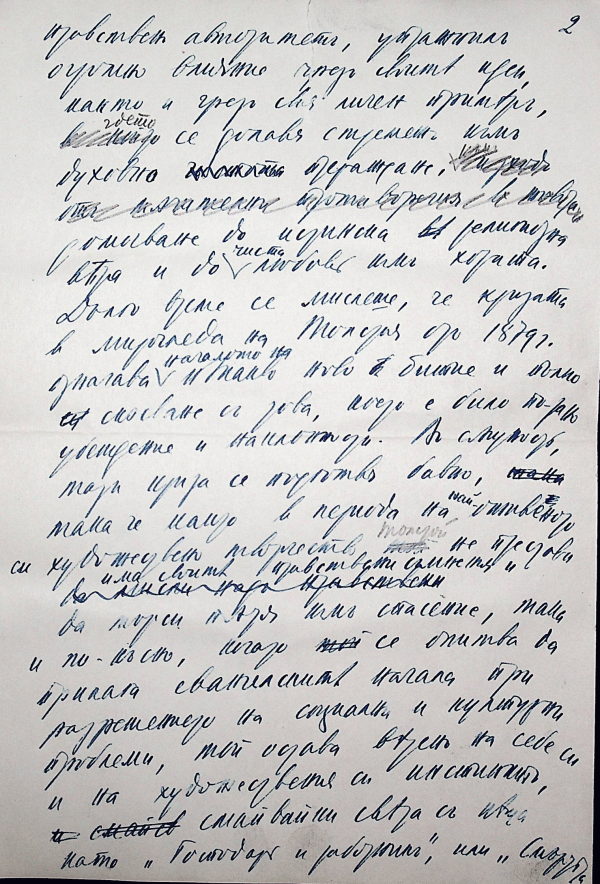 2
нравственъ авторитетъ, упражнилъ
огромно влияние чрезъ своитѣ идеи,
както и чрезъ своя личенъ примѣръ,
където се долавя стремежъ към
духовно прераждане,
домогване до истинска религиозна
вѣра и до чиста любовь към хората.
Дълго време се мислеше, че кризата
в мирогледа на Толстоя от 1879 г.
означава началото на ново битие и пълно
скъсване съ това, което е било по-рано
убеждение и наклонность. В сѫщность,
тази криза се подготвя бавно,
така че както в периода на най-активното
си художествено творчество Толстой не престава
да има своитѣ нравствени съмнения и
да търси пѫтя към спасение, така
и по-късно, когато се опитва да
прилага евангелскитѣ начала при
разрешението на социални и културни
проблеми, той остава вѣренъ на себе си
и на художествения си инстинктъ,
смайвайки свѣта съ нѣща
като „Господарь и работникъ", или „Смъртьта